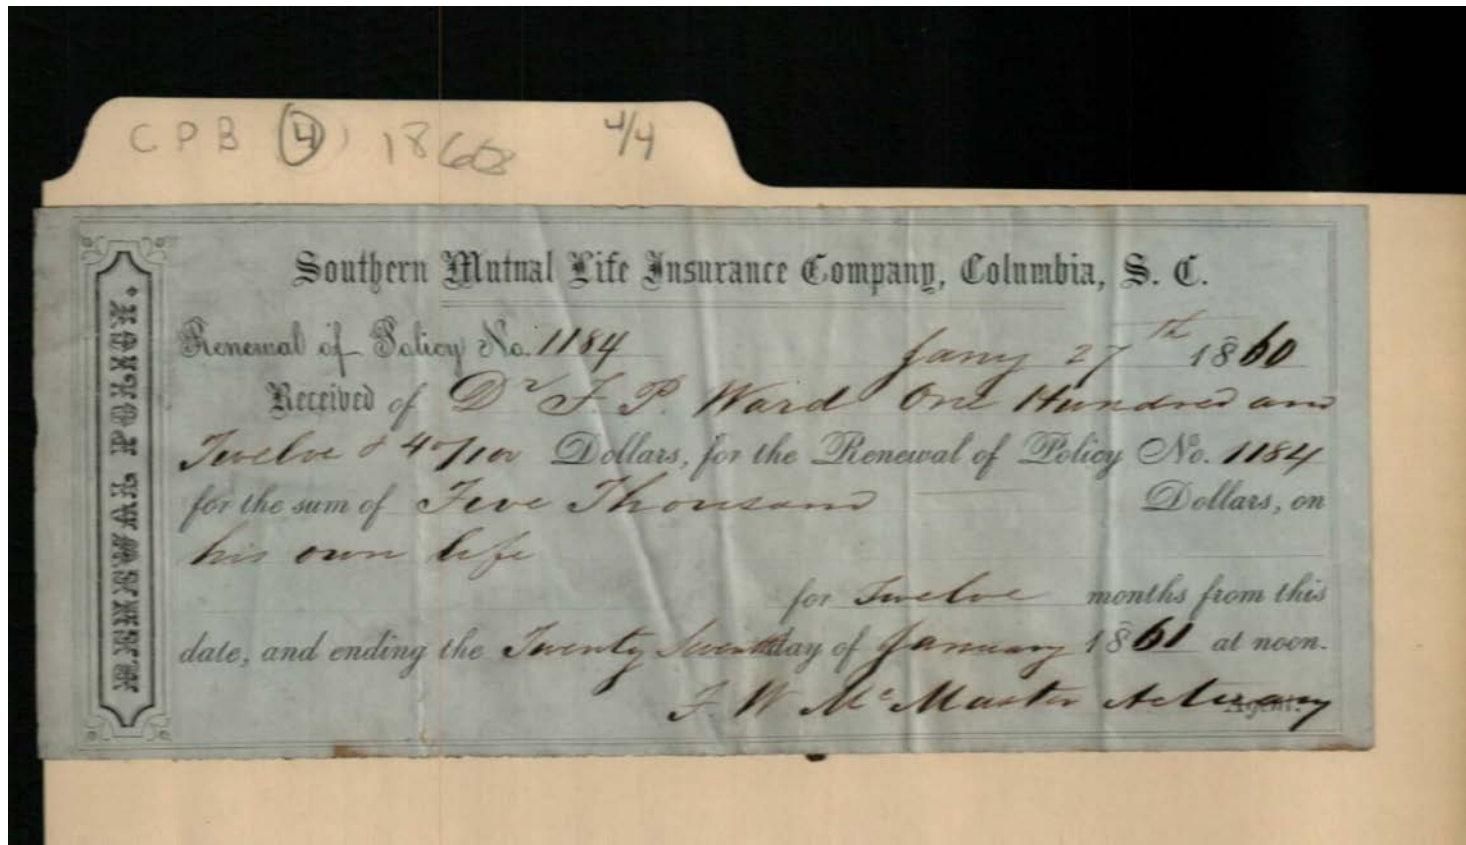 CPB (4) 1860 4/4
Southern Mutual Life Insurance Company, Columbia, S. C.
RENEWAL POLICY.
Renewal of Policy No. 1184 Jany 27th 1860
Received of Dr F. P. Ward One Hundred and
Twelve & 40/100 Dollars, for the Renewal of Policy No. 1184
for the sum of Five Thousand Dollars, on
his own life
for Twelve months from this
date, and ending the Twenty Seventh day of January 1861 at noon.
F. W. McMaster Actuary
Agent.